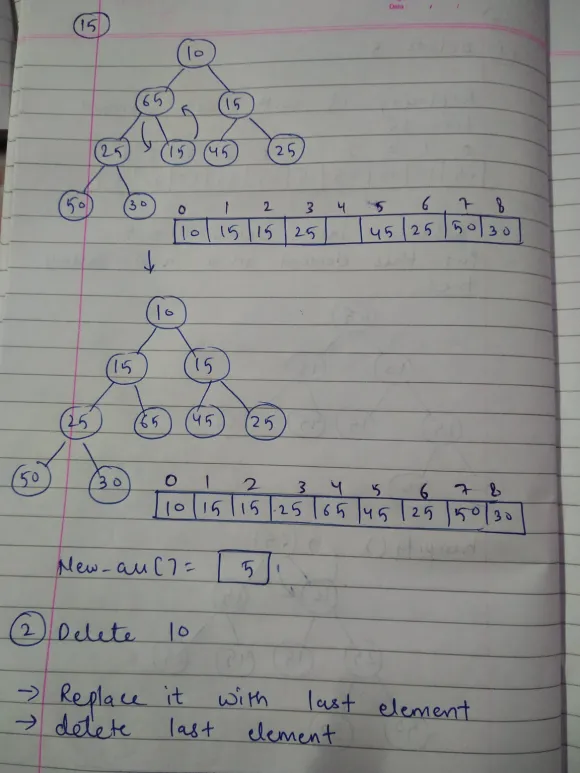 15
10
65 15
25 15 45 25
50 30
0 1 2 3 4 5 6 7 8
10 15 15 25 45 25 50 30
10
15 15
25 65 45 25
50 30
0 1 2 3 4 5 6 7 8
10 15 15 25 65 45 25 50 30
New-arr[] = 5
2 Delete 10
→ Replace it with last element
→ delete last element